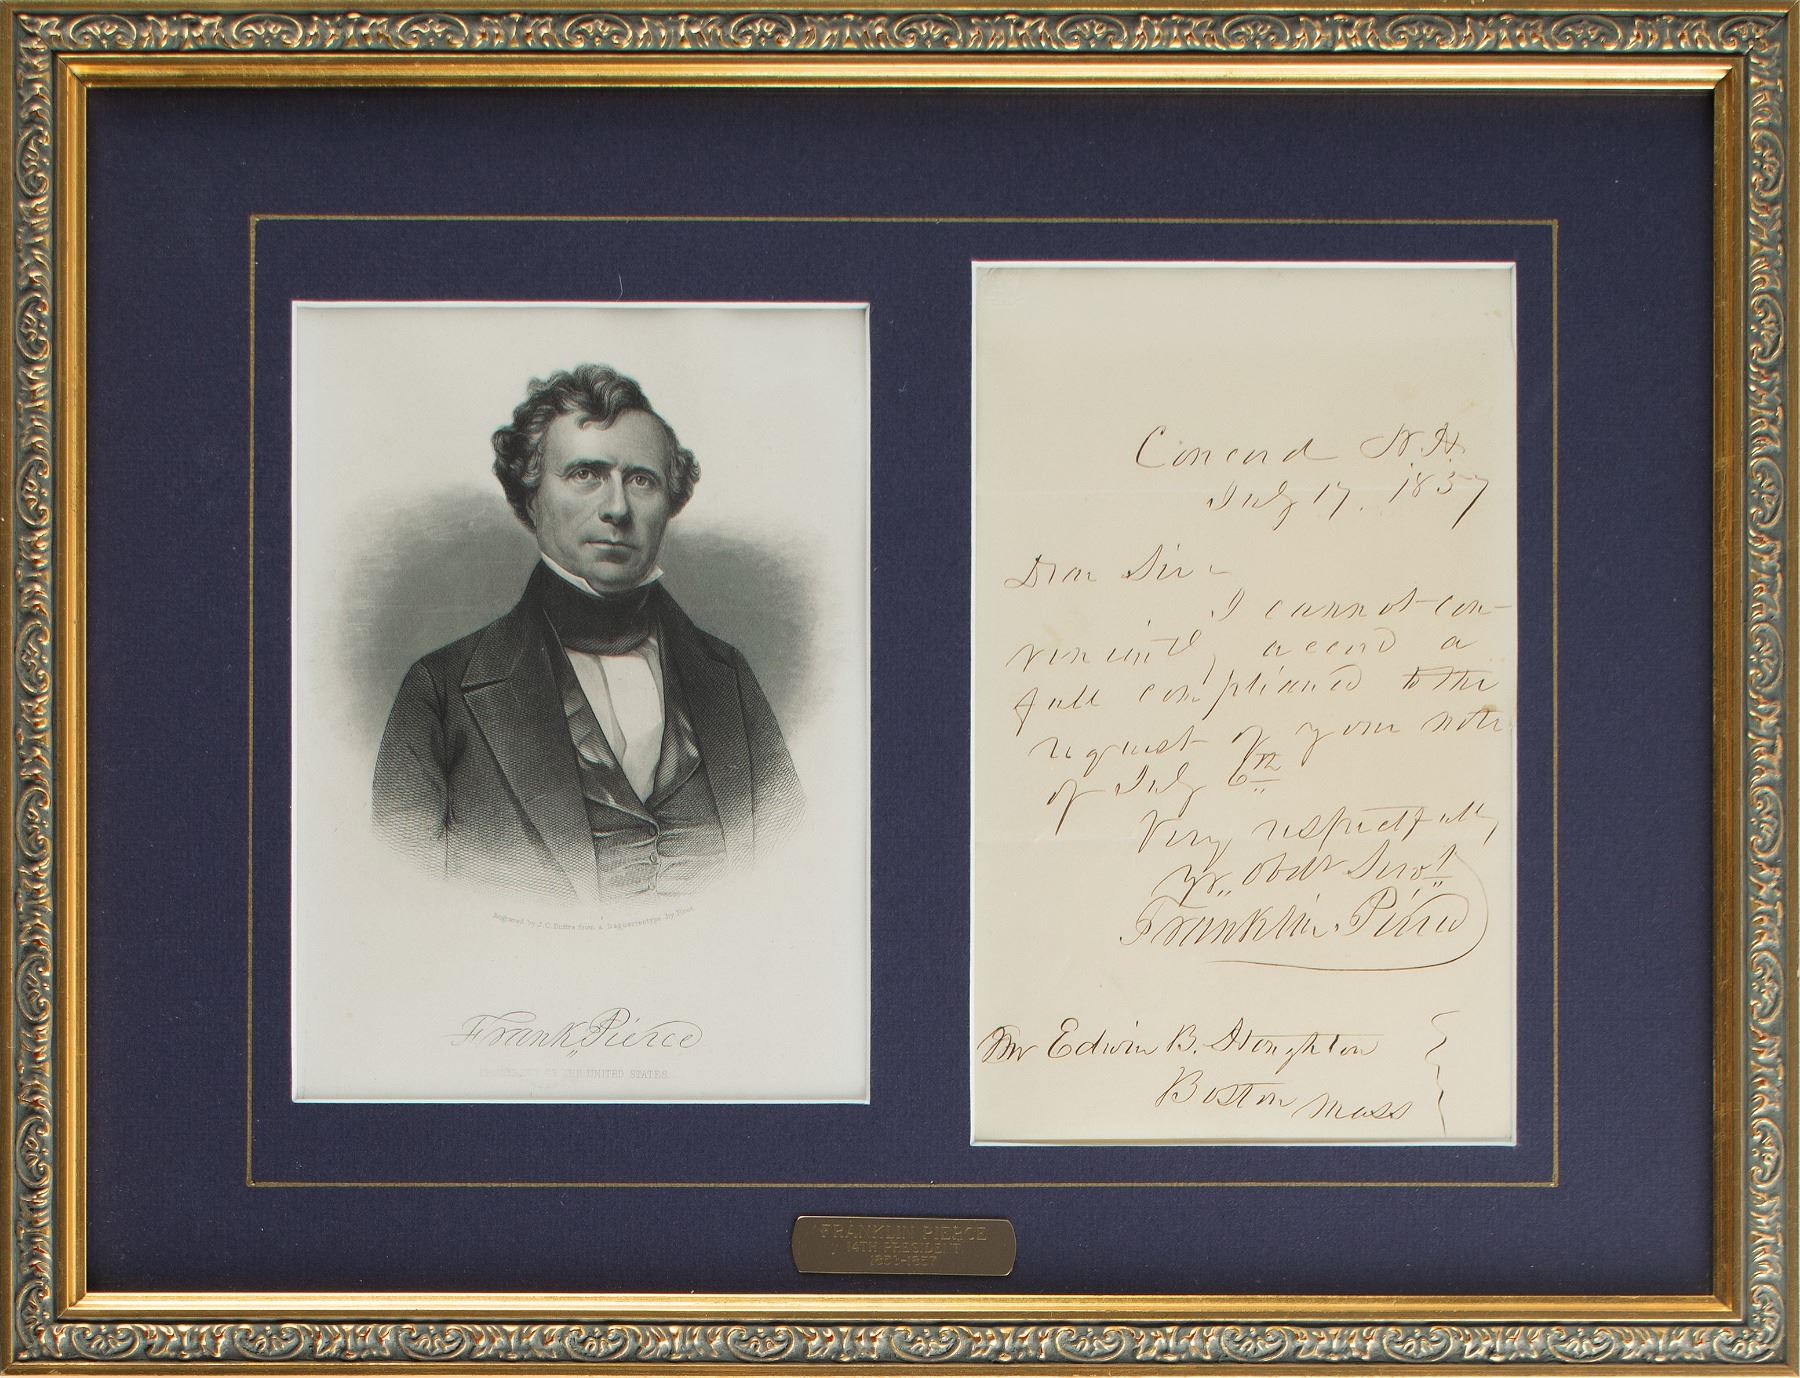 Engraved by J.C. Buttre from a Daguerreotype by Root.
Frank. Pierce
PRESIDENT OF THE UNITED STATES.
Concord N.H.
July 17. 1857
Dear Sir –
I cannot con-
veniently accord a
full compliance to the
request of your note
of July 6th
Very respectfully
Yr. Obdt Servt
Franklin Pierce
Mr Edwin B. Stoughton
Boston Mass
FRANKLIN PIERCE
14TH PRESIDENT
1853-1857